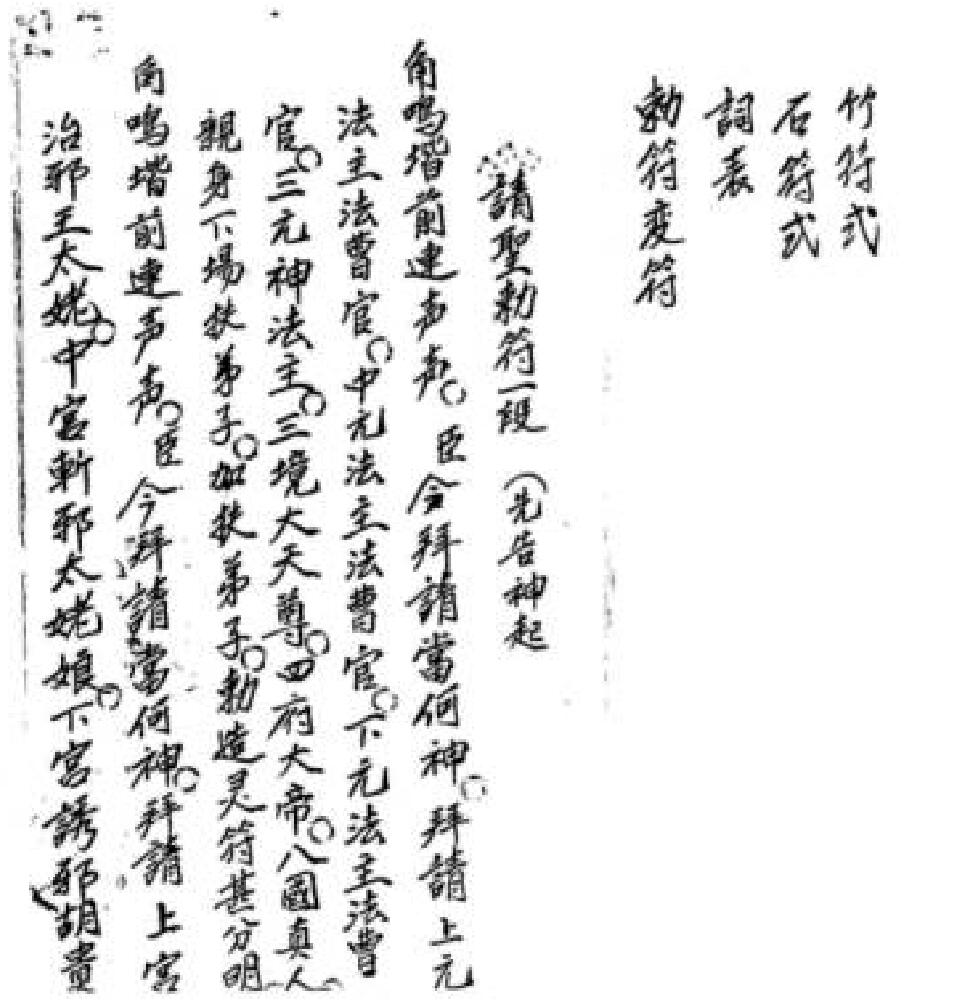 竹符式
石符式
詞表
勅符变符
請聖勅符一段（先告神起
角鳴堦前連声声。臣今拜請當何神。拜請上元
法主法曹官。中元法主法曹官。下元法主法曹
官。三元神法主。三境大天尊。四府大帝。八國真人
親身下場扶弟子。加扶弟子。勅造灵符甚分明
角鳴堦前連声声。臣今拜請當何神。拜請上宮
治邪王太姥。中宮斬邪太姥娘。下宮誘邪胡貴